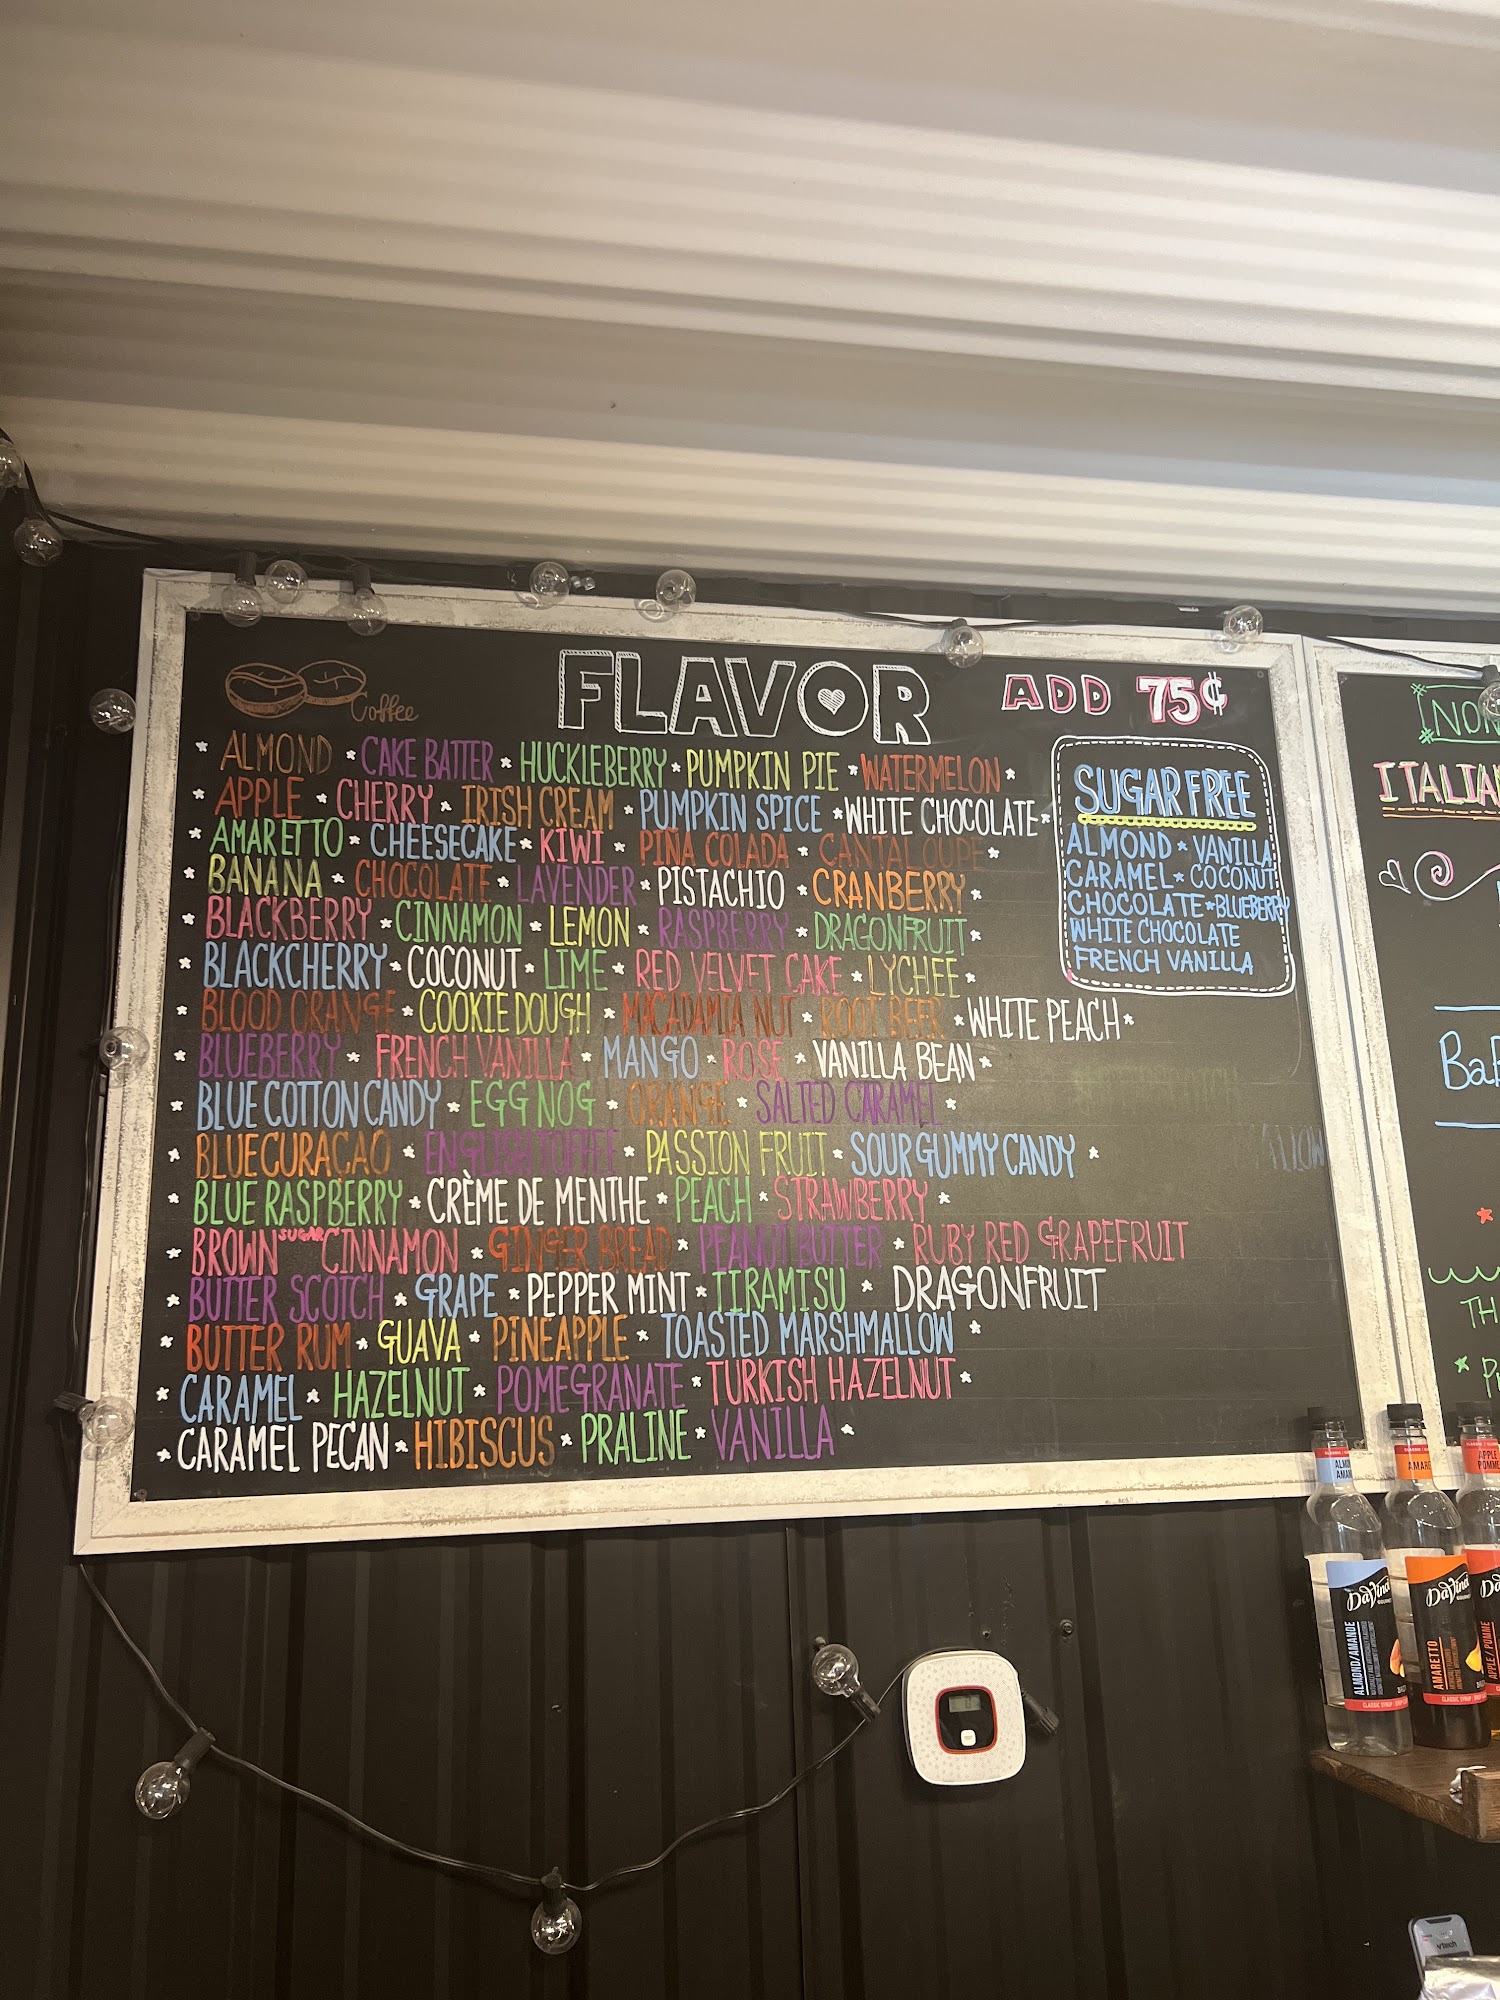 Coffee
FLAVOR
ADD 75¢
ALMOND * CAKE BATTER * HUCKLEBERRY * PUMPKIN PIE * WATERMELON *
APPLE * CHERRY * IRISH CREAM * PUMPKIN SPICE * WHITE CHOCOLATE *
AMARETTO * CHEESECAKE * KIWI * PIÑA COLADA * CANTALOUPE *
BANANA * CHOCOLATE * LAVENDER * PISTACHIO * CRANBERRY *
BLACKBERRY * CINNAMON * LEMON * RASPBERRY * DRAGONFRUIT *
BLACKCHERRY * COCONUT * LIME * RED VELVET CAKE * LYCHEE *
BLOOD ORANGE * COOKIE DOUGH * MACADAMIA NUT * ROOT BEER * WHITE PEACH *
BLUEBERRY * FRENCH VANILLA * MANGO * ROSE * VANILLA BEAN *
BLUE COTTON CANDY * EGG NOG * ORANGE * SALTED CARAMEL *
BLUE CURAÇAO * ENGLISH TOFFEE * PASSION FRUIT * SOUR GUMMY CANDY *
BLUE RASPBERRY * CRÈME DE MENTHE * PEACH * STRAWBERRY *
BROWN SUGAR CINNAMON * GINGER BREAD * PEANUT BUTTER * RUBY RED GRAPEFRUIT
BUTTER SCOTCH * GRAPE * PEPPER MINT * TIRAMISU * DRAGONFRUIT
BUTTER RUM * GUAVA * PINEAPPLE * TOASTED MARSHMALLOW *
CARAMEL * HAZELNUT * POMEGRANATE * TURKISH HAZELNUT *
CARAMEL PECAN * HIBISCUS * PRALINE * VANILLA *
SUGAR FREE
ALMOND * VANILLA
CARAMEL * COCONUT
CHOCOLATE * BLUEBERRY
WHITE CHOCOLATE
FRENCH VANILLA
ITALIA
TH
DaVinci
ALMOND/AMANDE
CLASSIC SYRUP
DaVinci
AMARETTO
CLASSIC SYRUP
APPLE/POMME